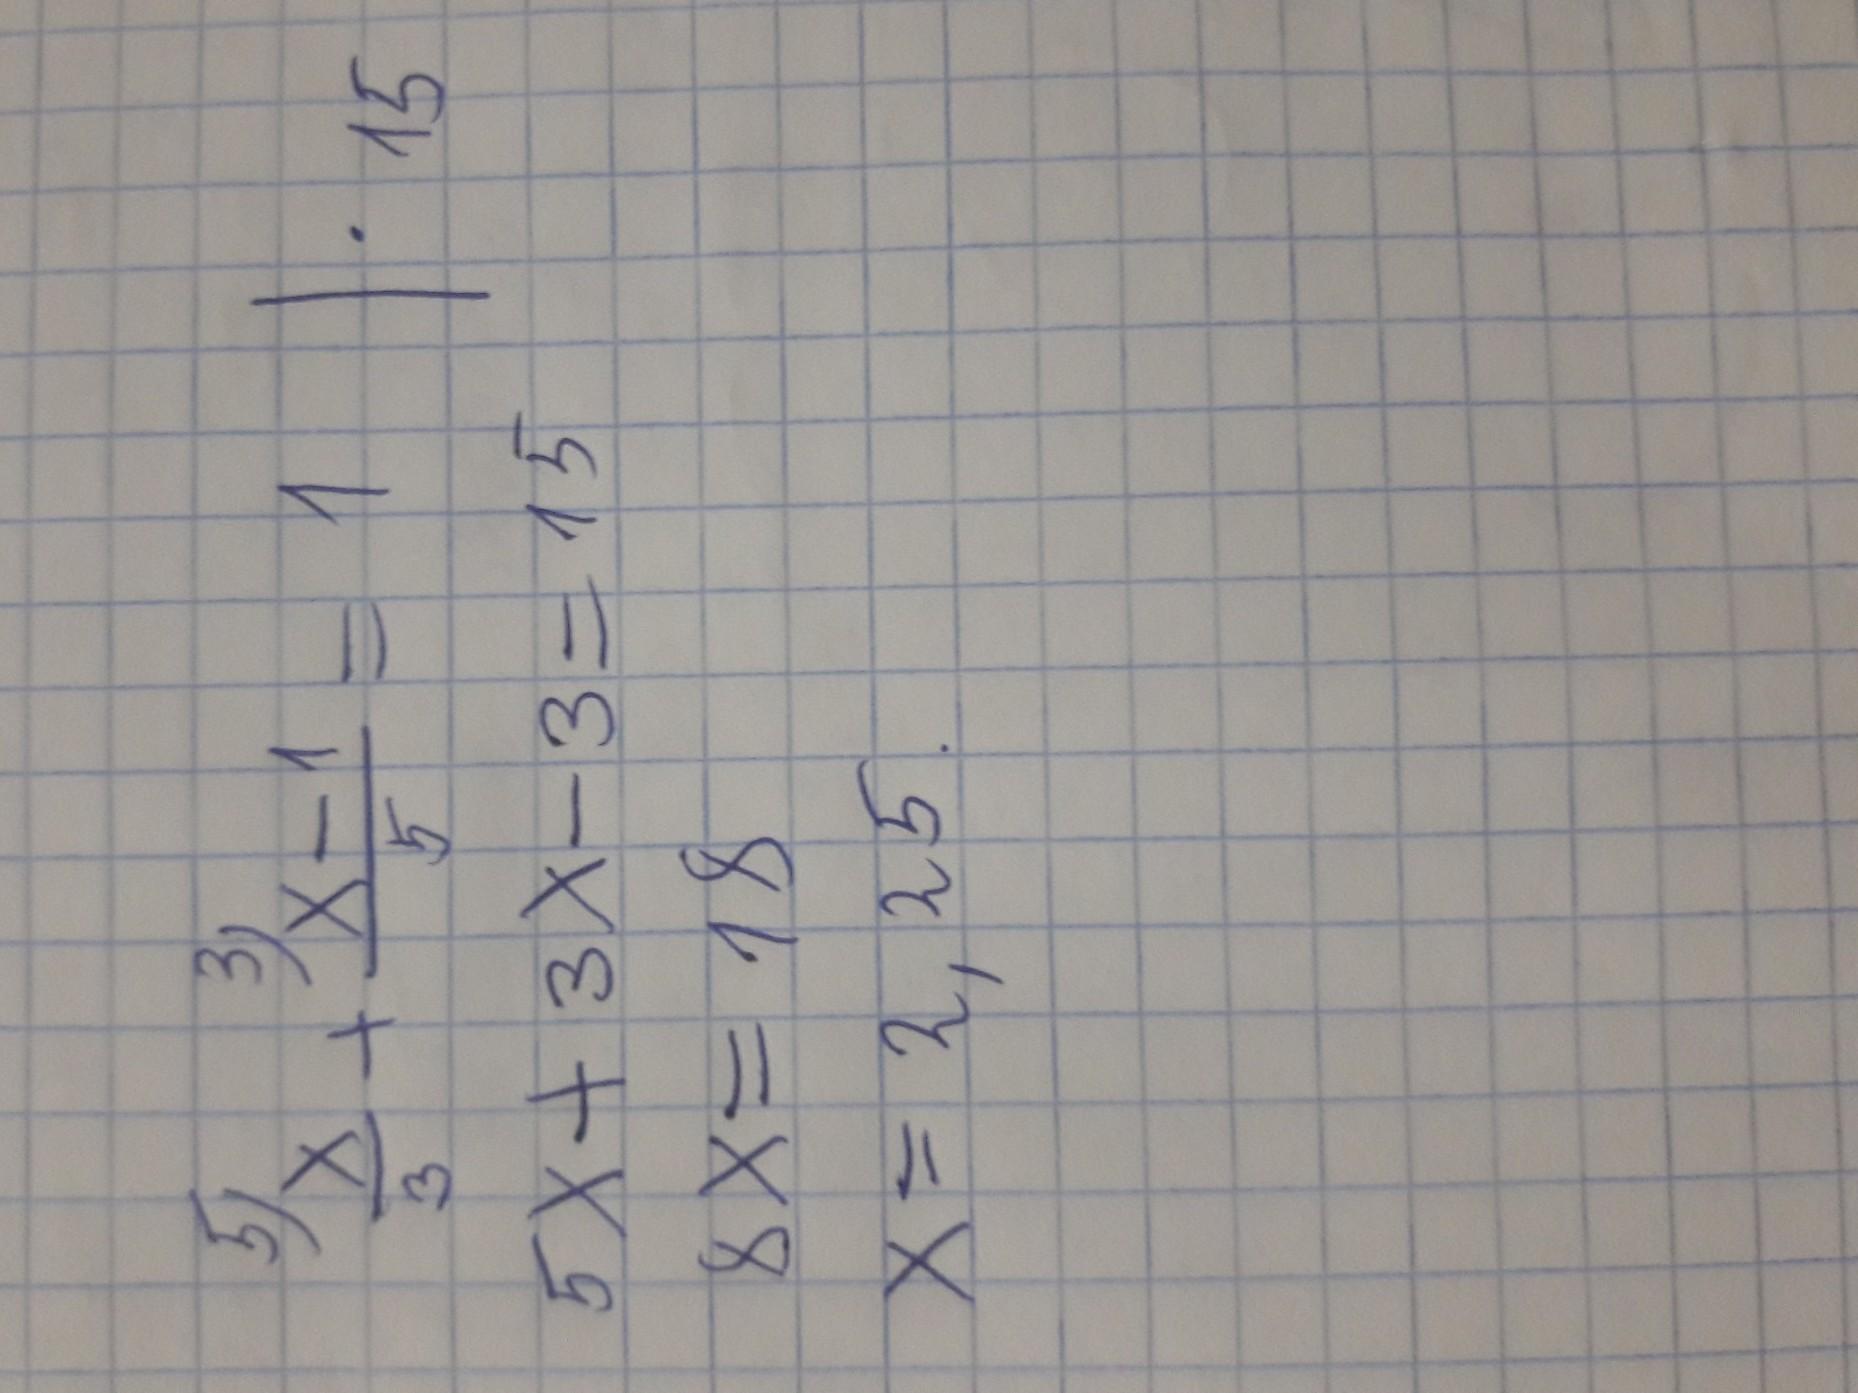 5) x/3 + 3) (x-1)/5 = 1 | · 15
5x + 3x - 3 = 15
8x = 18
x = 2,25.